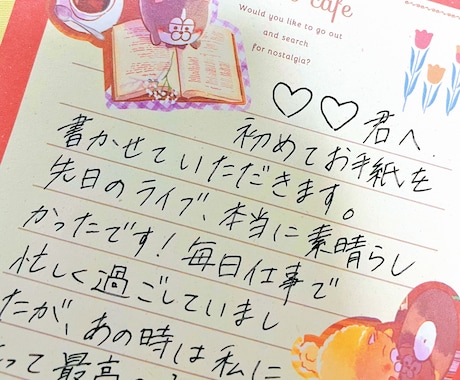 cafe
Would you like to go out
and search
for nostalgia?
♡♡君へ
初めてお手紙を
書かせていただきます。
先日のライブ、本当に素晴らし
かったです！毎日仕事で
忙しく過ごしていまし
たが、あの時は私に
って最高